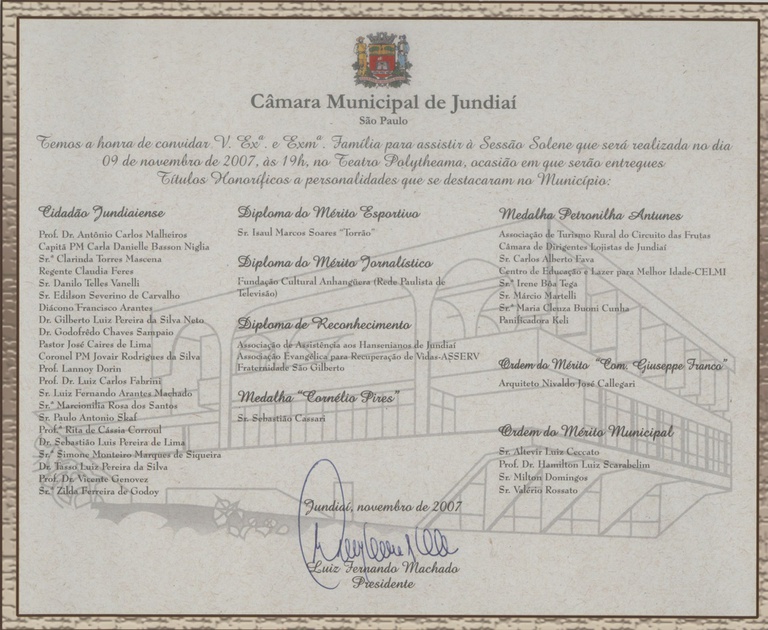 Câmara Municipal de Jundiaí
São Paulo
Temos a honra de convidar V. Exª. e Exmª. Família para assistir à Sessão Solene que será realizada no dia
09 de novembro de 2007, às 19h, no Teatro Polytheama, ocasião em que serão entregues
Títulos Honoríficos a personalidades que se destacaram no Município:
Cidadão Jundiaiense
Prof. Dr. Antônio Carlos Malheiros
Capitã PM Carla Danielle Basson Niglia
Sr.ª Clarinda Torres Mascena
Regente Claudia Feres
Sr. Danilo Telles Vanelli
Sr. Edilson Severino de Carvalho
Diácono Francisco Arantes
Dr. Gilberto Luiz Pereira da Silva Neto
Dr. Godofrêdo Chaves Sampaio
Pastor José Caires de Lima
Coronel PM Jovair Rodrigues da Silva
Prof. Lannoy Dorin
Prof. Dr. Luiz Carlos Fabrini
Sr. Luiz Fernando Arantes Machado
Sr.ª Marcionilia Rosa dos Santos
Sr. Paulo Antonio Skaf
Prof.ª Rita de Cássia Corroul
Dr. Sebastião Luis Pereira de Lima
Sr.ª Simone Monteiro Marques de Siqueira
Dr. Tasso Luiz Pereira da Silva
Prof. Dr. Vicente Genovez
Sr.ª Zilda Ferreira de Godoy
Diploma do Mérito Esportivo
Sr. Isaul Marcos Soares "Torrão"
Diploma do Mérito Jornalístico
Fundação Cultural Anhangüera (Rede Paulista de
Televisão)
Diploma de Reconhecimento
Associação de Assistência aos Hansenianos de Jundiaí
Associação Evangélica para Recuperação de Vidas-ASSERV
Fraternidade São Gilberto
Medalha "Cornélio Pires"
Sr. Sebastião Cassari
Medalha Petronilha Antunes
Associação de Turismo Rural do Circuito das Frutas
Câmara de Dirigentes Lojistas de Jundiaí
Sr. Carlos Alberto Fava
Centro de Educação e Lazer para Melhor Idade-CELMI
Srª Irene Bôa Tega
Sr. Márcio Martelli
Sr.ª Maria Cleuza Buoni Cunha
Panificadora Keli
Ordem do Mérito "Com. Giuseppe Franco"
Arquiteto Nivaldo José Callegari
Ordem do Mérito Municipal
Sr. Altevir Luiz Ceccato
Prof. Dr. Hamilton Luiz Scarabelim
Sr. Milton Domingos
Sr. Valério Rossato
Jundiaí, novembro de 2007
Luiz Fernando Machado
Presidente